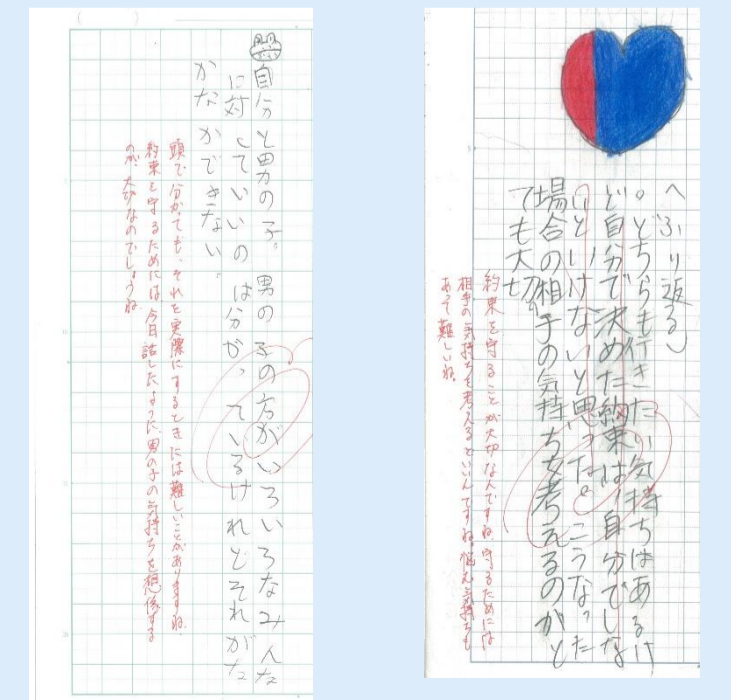 自分と男の子。男の子の方がいろいろなみんな
に対していいのは分かっているけれどそれがな
かなかできない。
頭で分かっても、それを実際にするときには難しいことがありますね。
約束を守るためには今日話したように、男の子の気持ちを想像する
のが、大切なのでしょうね。
〈ふり返る〉
○どちらも行きたい気持ちはあるけ
ど自分で決めた約束は、自分でしな
いといけないと思った。こうなった
場合の相手の気持ちを考えるのがと
ても大切
約束を守ることが大切なんですね。守るためには
相手の気持ちを考えるといいんですね。悩む気持ちも
あって難しいね。